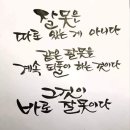 잘못은
따로 있는 게 아니다
같은 잘못을
계속 되풀이 하는 것이다
그것이
바로 잘못이다